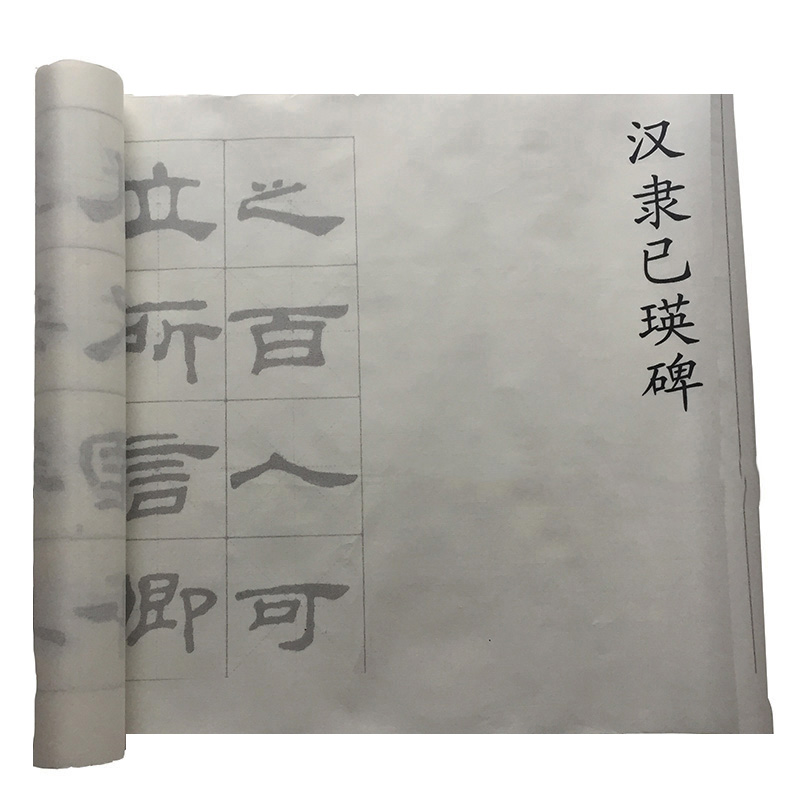 汉隶已瑛碑
之百人可
立所信卿